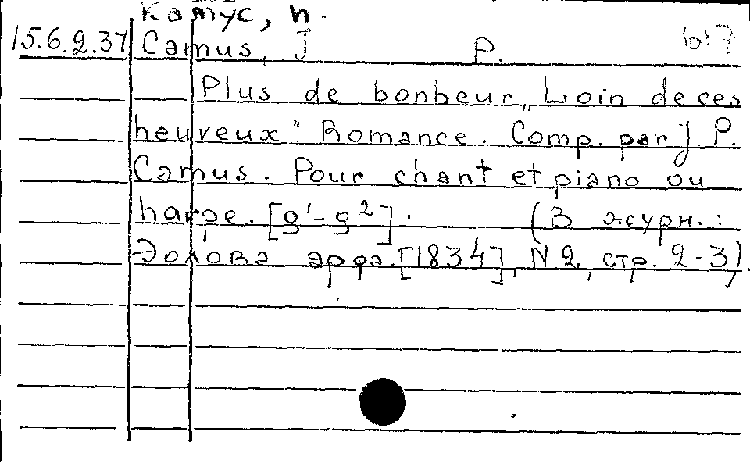 Камус, П.
15.6.2.37 Camus, J P.
Plus de bonheur „Loin de ces
heureux" Romance. Comp. par J P.
Camus. Pour chant et piano ou
harpe. [g¹-g²]. (В журн.:
Эолова арфа [1834], N 2, стр. 2-3)